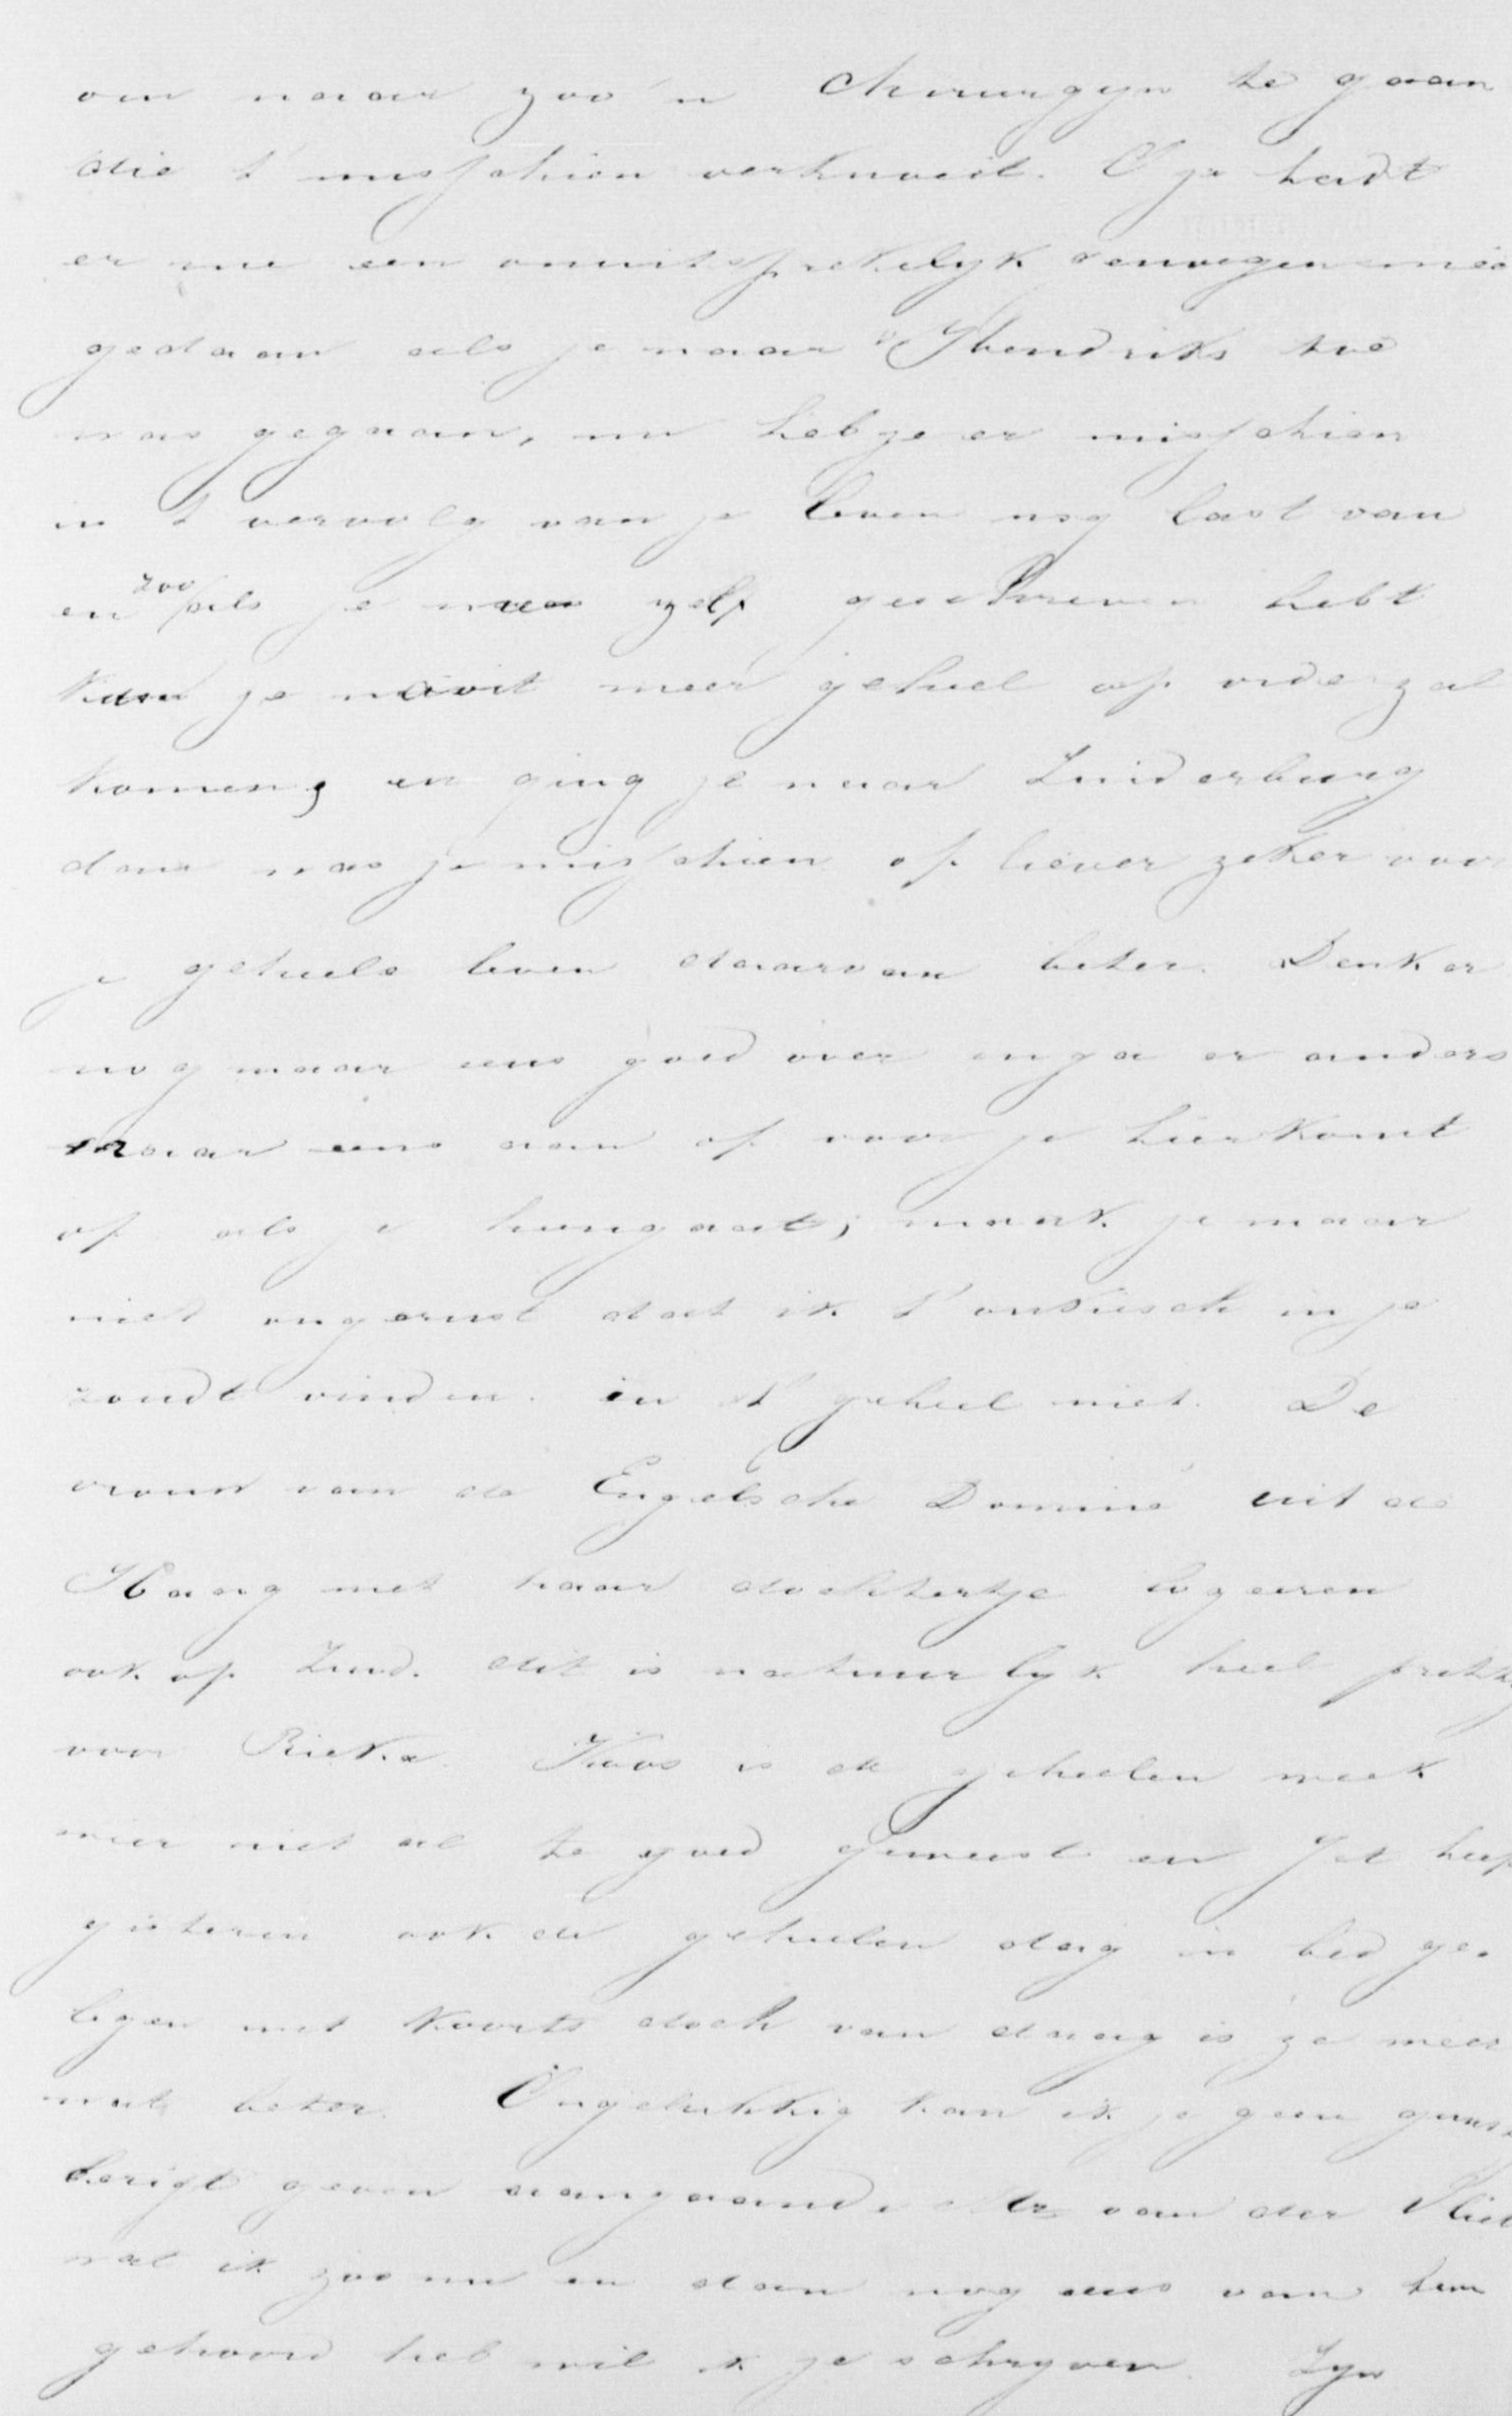 om naar zoo'n Chirurgyn te gaan
die 't misschien verknoeit. O je hadt
er me een onuitsprekelyk genoegen meê
gedaan als je naar Hendriks toe
was gegaan, nu heb je er misschien
in 't vervolg van je leven nog last van
en zoo als je me zelf geschreven hebt
kan je nooit meer geheel op orde zal
komen, en ging je naar Zuiderburg
dan was je misschien of liever zeker voor
je geheele leven daarvan beter. Denk er
nog maar eens goed over en ga er anders
maar eens aan of voor je hier komt
of als je heengaat; maak je maar
niet ongerust dat ik 't onkiesch in je
zoudt vinden. in 't geheel niet. De
vrouw van de Engelsche Dominé uit de
Haag met haar dochtertje logeeren
ook op Zuid. dit is natuurlyk heel prettig
voor Rieka. Koos is de geheelen week
weer niet al te goed geweest en Jet heeft
gisteren ook de geheelen dag in bed ge-
legen met koorts doch van daag is ze weer
wat beter. Ongelukkig kan ik je geen gunst
berigt geven aangaande Mr van der Vliet
wat ik zoo nu en dan nog eens van hem
gehoord heb wil ik je schryven. Zyn